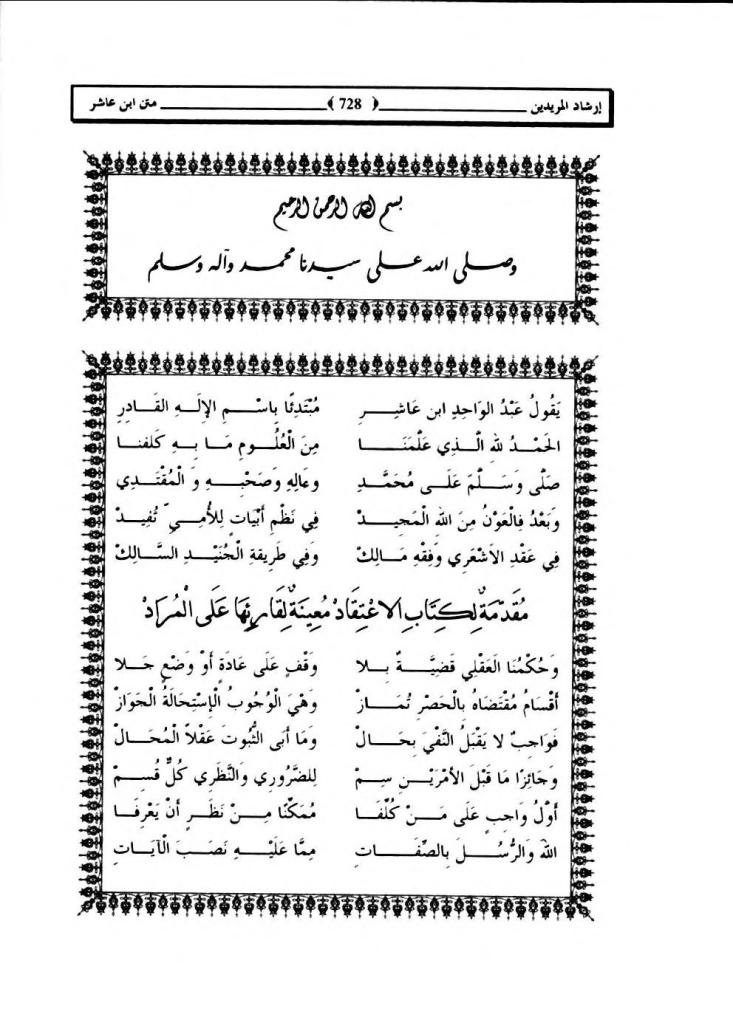 إرشاد المريدين ﴿ 728 ﴾ متن ابن عاشر
بسم الله الرحمن الرحيم
وصلى الله على سيدنا محمد وآله وسلم
يَقُولُ عَبْدُ الوَاحِدِ ابن عَاشِرِ مُبْتَدِئًا بِاسْمِ الإِلَهِ القَادِرِ
الحَمْدُ لله الَّذِي عَلَّمَنَا مِنَ الْعُلُومِ مَا بِهِ كَلفنا
صَلَّى وَسَلَّمَ عَلَى مُحَمَّدٍ وعَالِهِ وَصَحْبِهِ وَ الْمُقْتَدِي
وَبَعْدُ فِالْعَوْنُ مِنَ الله الْمَجِيدْ فِي نَظْمِ أَبْيَاتٍ لِلأُمِيِّ تُفِيدْ
فِي عَقْدِ الاَشْعَرِي وَفِقْهِ مَالِكْ وَفِي طَرِيقةِ الْجُنَيْدِ السَّالِكْ
مُقَدِّمَةٌ لِكِتَابِ الاعْتِقَادْ مُعِينَةٌ لِقَارِئِهَا عَلَى الْمُرَادْ
وَحُكْمُنَا العَقْلِي قَضِيَّةٌ بِلا وَقْفٍ عَلَى عَادَةٍ أَوْ وَضْعٍ جَلا
أَقْسَامُ مُقْتَضَاهُ بِالْحَصْرِ تُمَازْ وَهْيَ الْوُجُوبُ الْإِسْتِحَالَةُ الْجَوَازْ
فَوَاجِبٌ لا يَقْبَلُ النَّفْيَ بِحَالْ وَمَا أَبَى الثُّبُوتَ عَقْلاً الْمُحَالْ
وَجَائِزًا مَا قَبْلَ الأَمْرَيْنِ سِمْ لِلضَّرُورِي وَالنَّظَرِي كُلٌّ قُسِمْ
أَوَّلُ وَاجِبٍ عَلَى مَنْ كُلِّفَا مُمَكَّنًا مِنْ نَظَرٍ أَنْ يَعْرِفَا
اللهَ وَالرُّسُلَ بِالصِّفَاتِ مِمَّا عَلَيْهِ نَصَبَ الْآيَاتِ